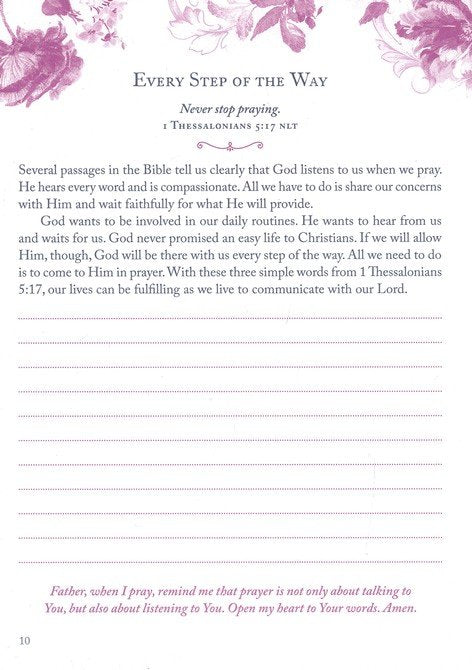 Every Step of the Way
Never stop praying.
1 Thessalonians 5:17 NLT
Several passages in the Bible tell us clearly that God listens to us when we pray.
He hears every word and is compassionate. All we have to do is share our concerns
with Him and wait faithfully for what He will provide.
God wants to be involved in our daily routines. He wants to hear from us
and waits for us. God never promised an easy life to Christians. If we will allow
Him, though, God will be there with us every step of the way. All we need to do
is to come to Him in prayer. With these three simple words from 1 Thessalonians
5:17, our lives can be fulfilling as we live to communicate with our Lord.
Father, when I pray, remind me that prayer is not only about talking to
You, but also about listening to You. Open my heart to Your words. Amen.
10